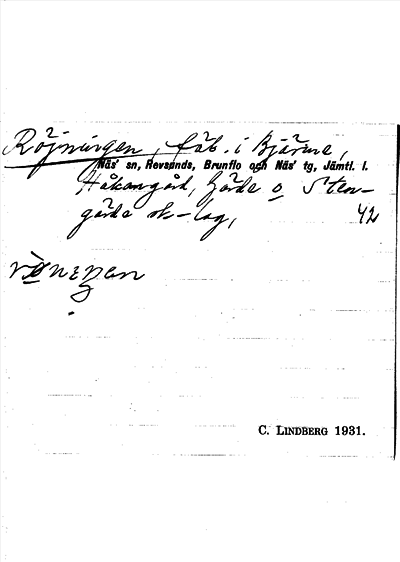 Röjningen, fäb. i Bjärme,
Näs' sn, Revsunds, Brunflo och Näs' tg, Jämtl. l.
Håkangård, Gärde o Sten-
gärde sk-lag, 42
C. LINDBERG 1931.